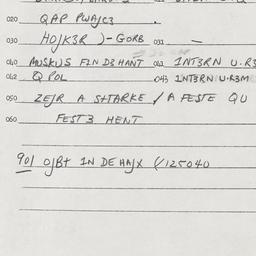 020 QAP PWAJC3 .
030 HOJK3R )-GORB 031 —
040 MUSKUS FIND3 HANT 041 1NT3RN U.R3
042 Q POL 043 1NT3RN U.R3M
050 ZEJR A STTARKE / A FESTE QU
060 FEST3 HENT
901 OJBT IN DE HAJX (/125040